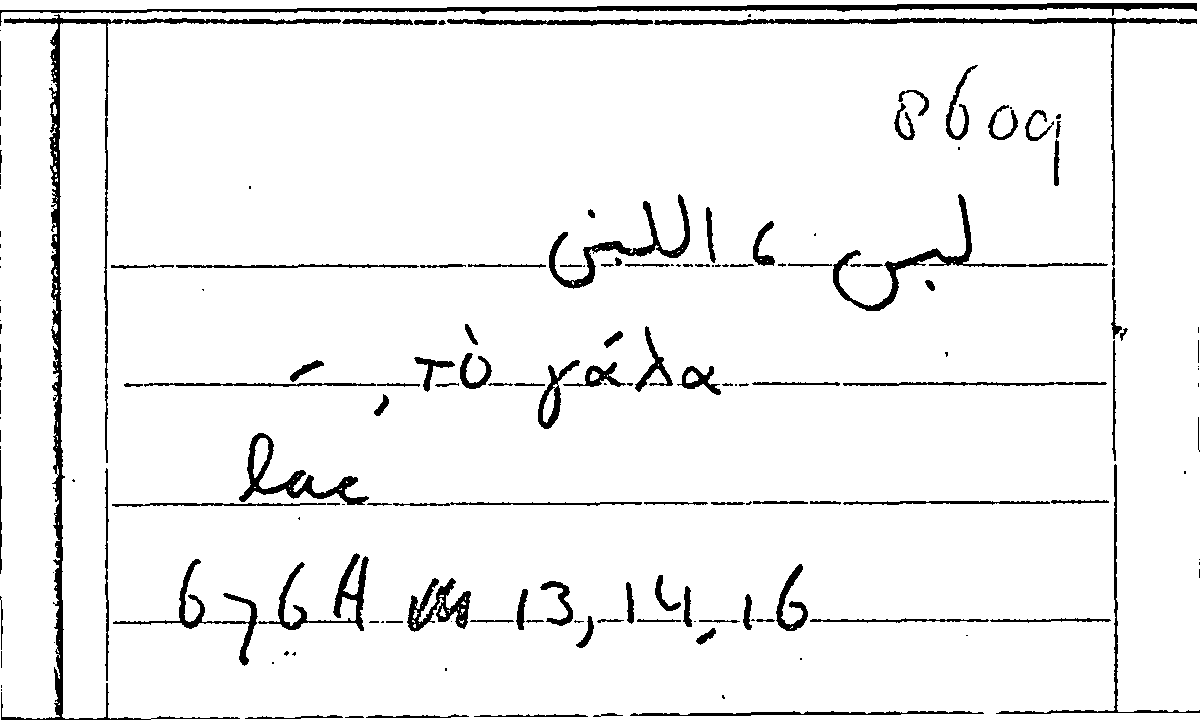 8609
لبن ، اللبن
–, τὸ γάλα
lac
676A 13, 14, 16